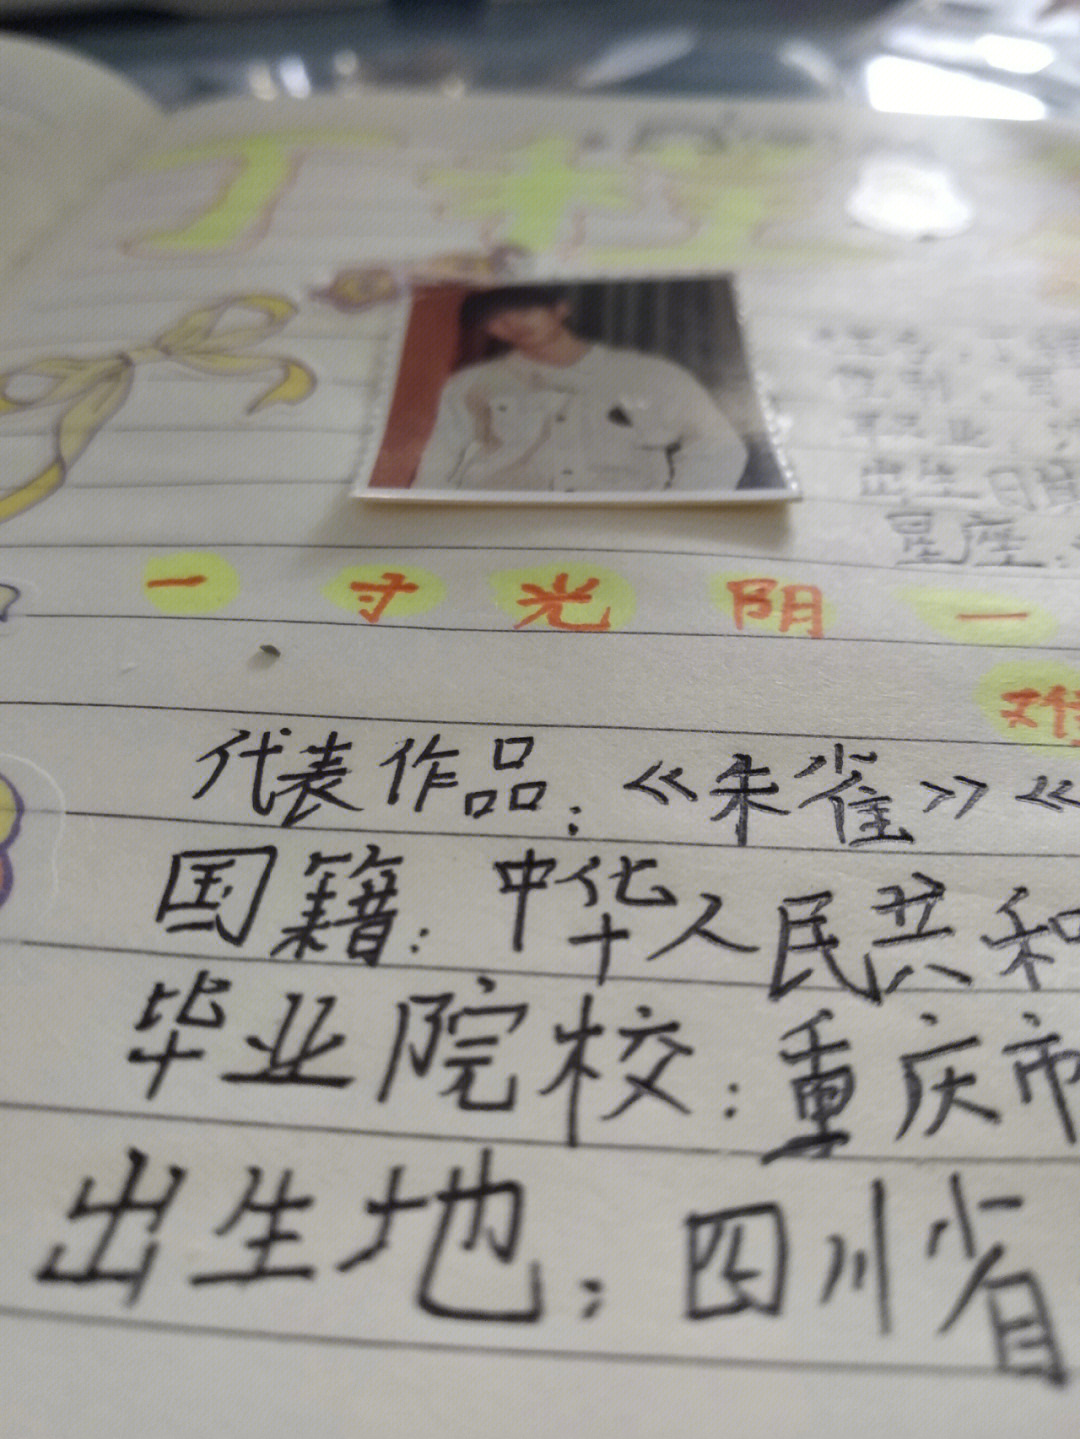 丁程
出生日期
星座:
一寸光阴一
难
代表作品:《朱雀》《
国籍:中华人民共和
毕业院校:重庆市
出生地:四川省